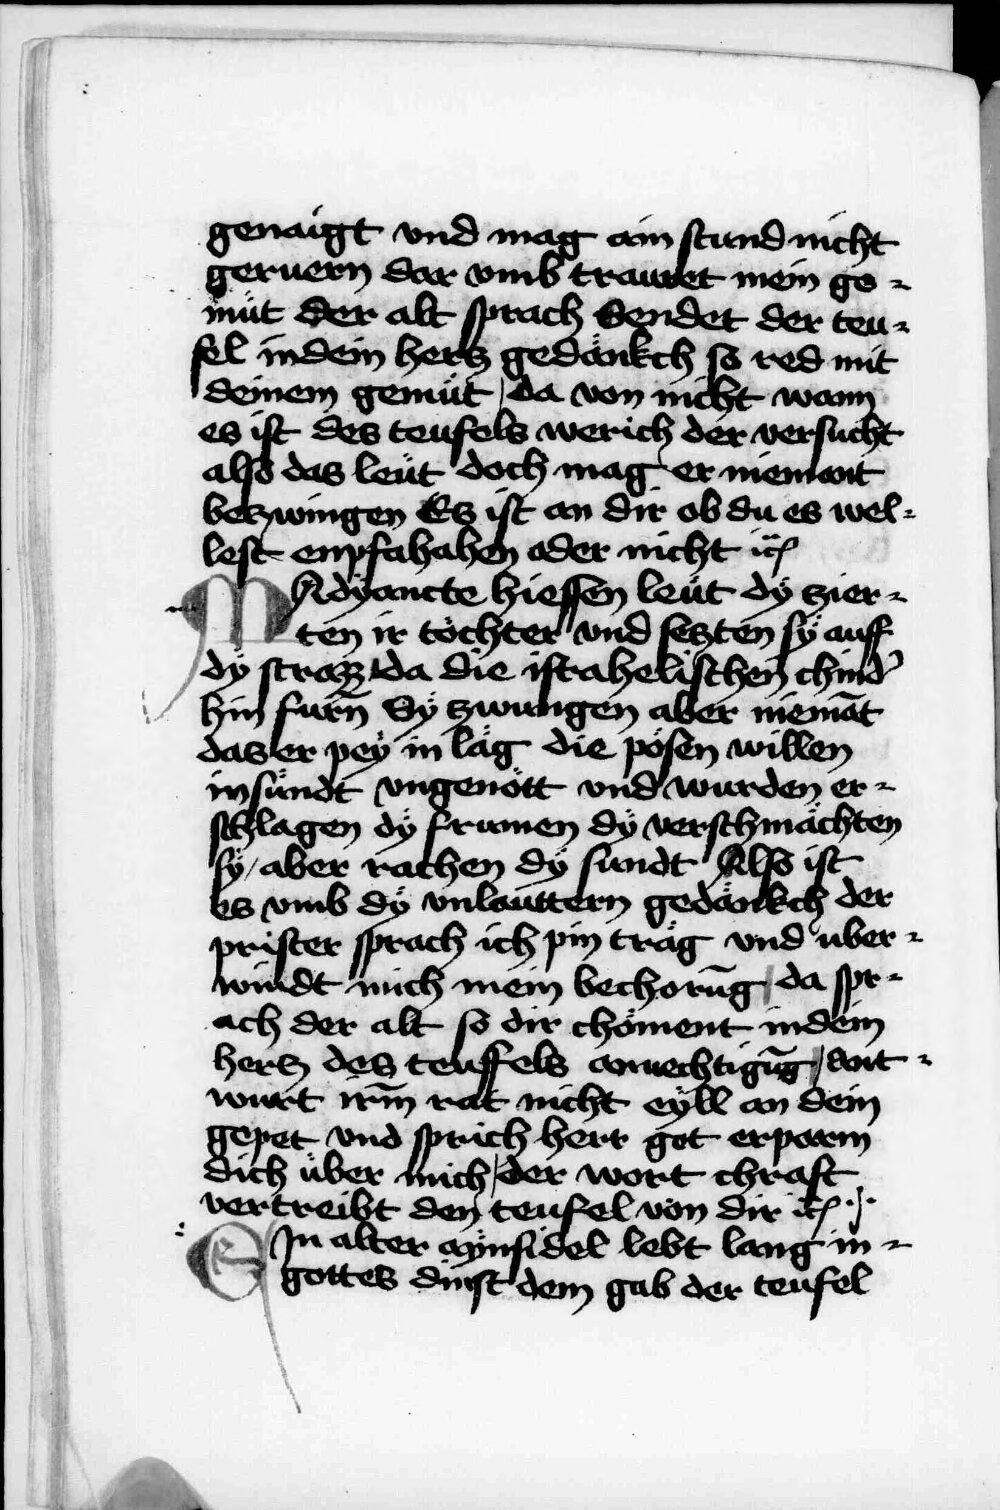 genaigt vnd mag ain stund nicht
geruern dar vmb trawret mein ge-
müt Der alt sprach Sendet der teu-
fel in dein hertz gedänkch so red mit
deinem gemüt / da von nicht wann
es ist des teufels werich der versucht
also das leüt doch mag er niemant
betzwingen Es ist an dir ob du es wel-
lest enpfahahen oder nicht ⁊c̃
MAdyancte hiessen leüt dÿ zier-
ten ir töchter vnd satzten sÿ auff
dÿ strazz da die israhelischen chind'
hin furñ Sÿ zwungen aber niemãt
das er peÿ in läg die pösen willen
in sündt vngenött vnd wurden er-
schlagen dÿ frumen dÿ verschmächten
sÿ / aber rachen dÿ sundt Also ist
es vmb dÿ vnlauttern gedänkch der
prister sprach ich pin träg vnd uber-
windt mich mein bechorũg / da spr-
ach der alt so dir chöment in dein
hertz des teuffels anuechtigũg / Ant-
wurt irm̃ rat nicht eÿll an dein
gepet vnd sprich herr got erparm
dich über mich / der wort chraft
vertreibt den teufel von dir ⁊c̃
EIn alter aÿnsidel lebt lang in-
gottes dinst dem gab der teufel